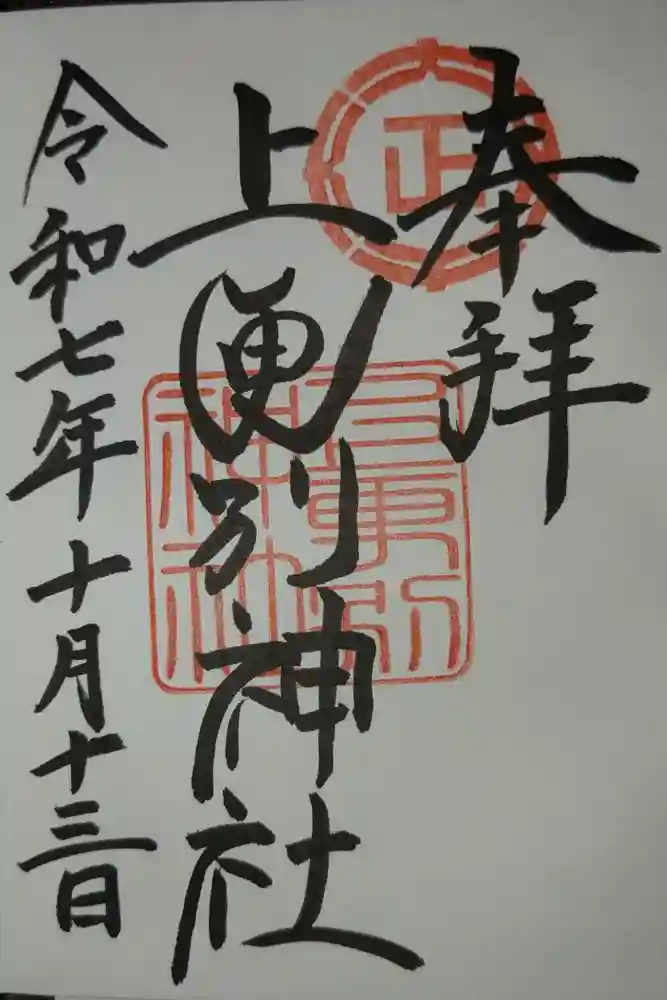 奉拝
上更別神社
令和七年十月十三日